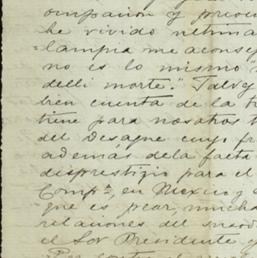 ompasion y preocu
he vivido ultima
lampia me aconsej
no es lo mismo"
delli morte." Talvez
tien para nosotros
del Desague cuyo fr
además de la falta
disprestigio para el
Compa. en Mexico y
que es peor, mucha
relaciones del
el Sor Presidente y